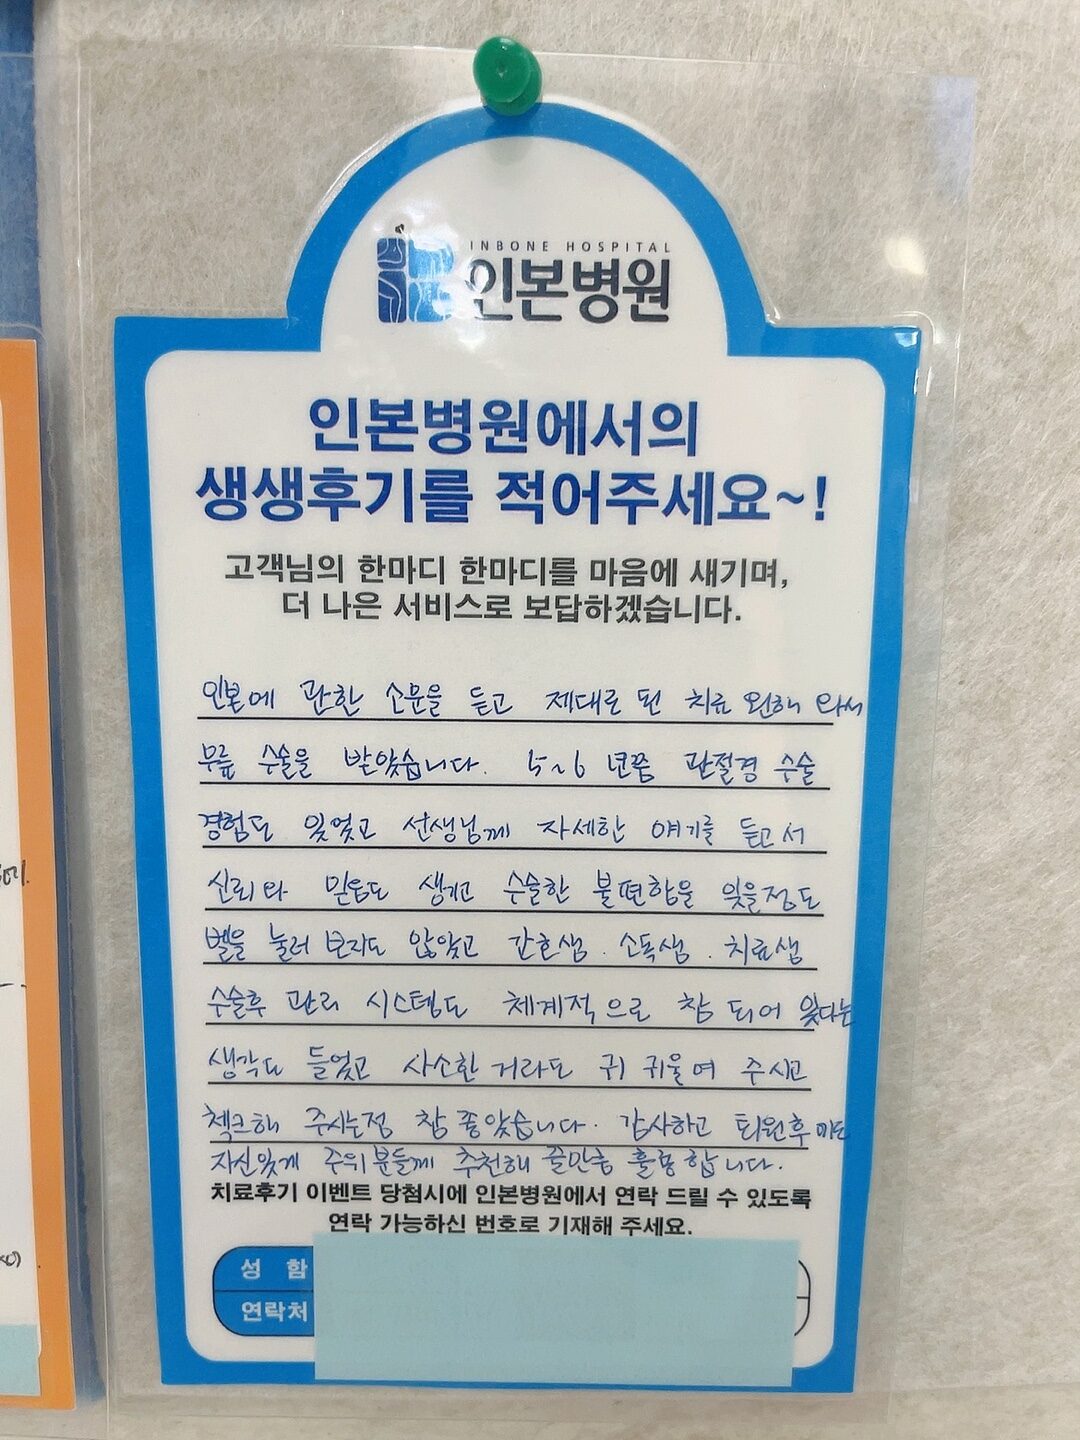 INBONE HOSPITAL
인본병원
인본병원에서의
생생후기를 적어주세요~!
고객님의 한마디 한마디를 마음에 새기며,
더 나은 서비스로 보답하겠습니다.
인본에 관한 소문을 듣고 제대로 된 치료 원해 와서
무릎 수술을 받았습니다. 5~6 년쯤 관절경 수술
경험도 있었고 선생님께 자세한 얘기를 듣고서
신뢰와 믿음도 생기고 수술한 불편함을 잊을정도
벨을 눌러 보지도 않았고 간호샘. 소독샘. 치료샘
수술후 관리 시스템도 체계적으로 참 되어 있다는
생각도 들었고 사소한 거라도 귀 귀울여 주시고
첵크해 주시는점 참 좋았습니다. 감사하고 퇴원후에도
자신있게 주위분들께 추천해 줄만큼 훌륭합니다.
치료후기 이벤트 당첨시에 인본병원에서 연락 드릴 수 있도록
연락 가능하신 번호로 기재해 주세요.
성 함
연락처